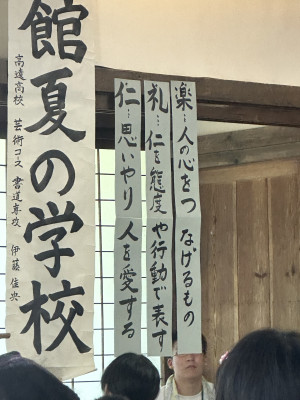 楽…人の心をつなげるもの
礼…仁を態度や行動で表す
仁…思いやり 人を愛する
館夏の学校
高遠高校 芸術コース 書道専攻 伊藤佳央